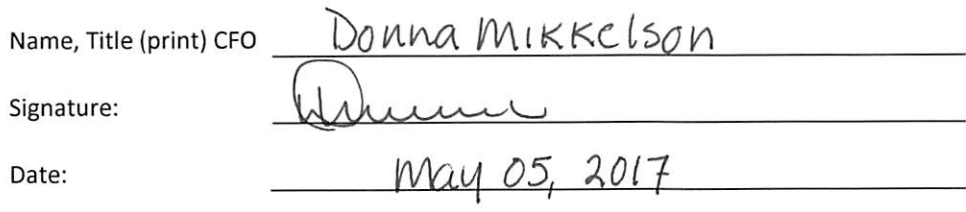 Name, Title (print) CFO Donna Mikkelson
Signature:
Date: May 05, 2017